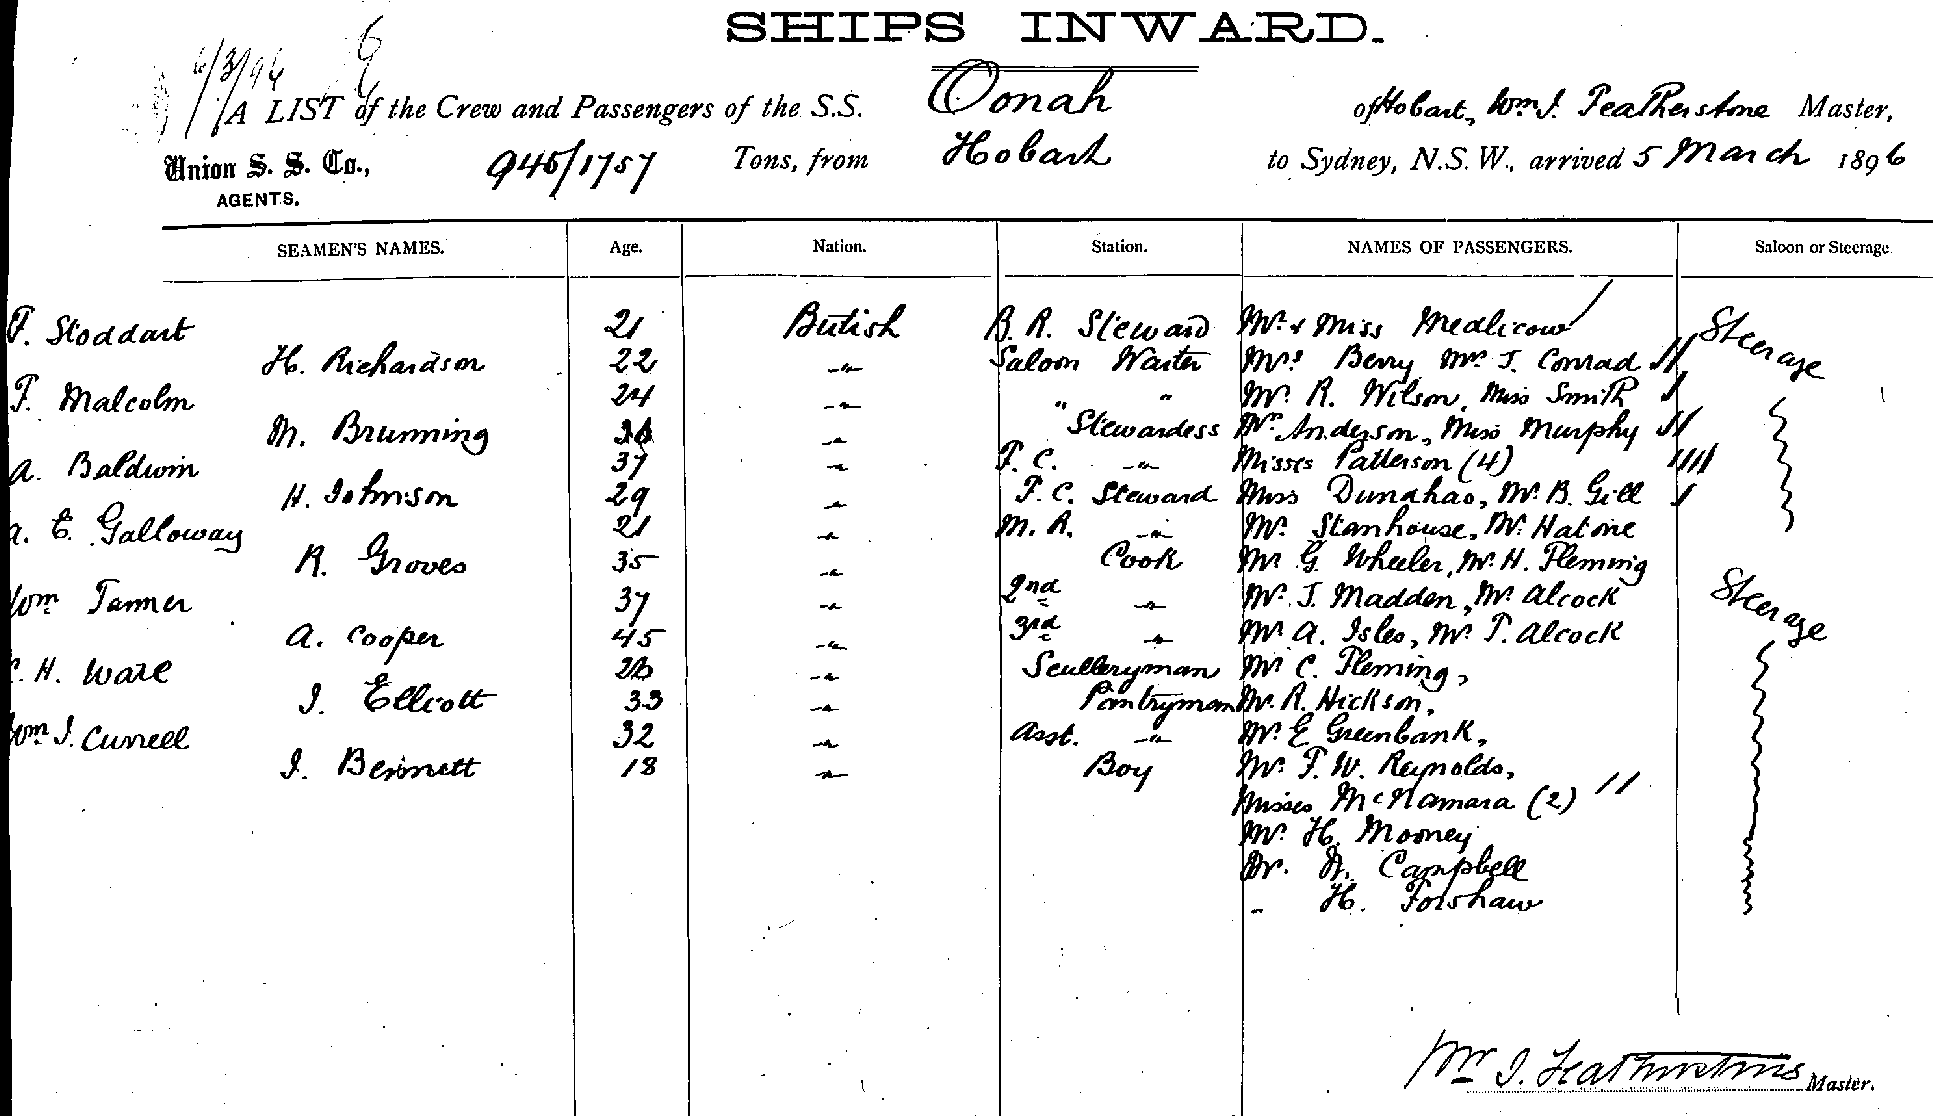 SHIPS INWARD.
6/3/96
A LIST of the Crew and Passengers of the S.S. Oonah of Hobart, Wm J. Featherstone Master,
Union S. S. Co., 945/1757 Tons, from Hobart to Sydney, N.S.W., arrived 5 March 1896
AGENTS.
SEAMEN'S NAMES. Age. Nation. Station. NAMES OF PASSENGERS. Saloon or Steerage
F. Stoddart 21 British B. R. Steward Mr & Miss Medlicow Steerage
H. Richardson 22 " Saloon Waiter Mrs Berry Mr J. Conrad
F. Malcolm 24 " " " Mr. R. Wilson, Miss Smith
M. Brunning " Stewardess Mr Anderson, Miss Murphy
A. Baldwin 37 " F. C. " Misses Patterson (4)
H. Johnson 29 " F. C. Steward Miss Dunahao, Mr. B. Gill
A. E. Galloway 21 " M. R. " Mr. Stanhouse, Mr. Hatone
R. Groves 35 " Cook Mr G. Wheeler, Mr. H. Fleming
Wm Tanner 37 " 2nd " Mr. J. Madden, Mr Alcock Steerage
A. Cooper 45 " 3rd " Mr A. Isles, Mr. T. Alcock
C. H. Ware 26 " Sculleryman Mr C. Fleming,
J. Ellicott 33 " Pantryman Mr. R. Hickson,
Wm J. Currell 32 " Asst. " Mr. E Greenbank,
J. Bennett 18 " Boy Mr. F. W. Reynolds,
Misses McNamara (2)
Mr. H. Mooney
Mr. A. Campbell
" H. Forshaw
Wm J. Featherstone Master.